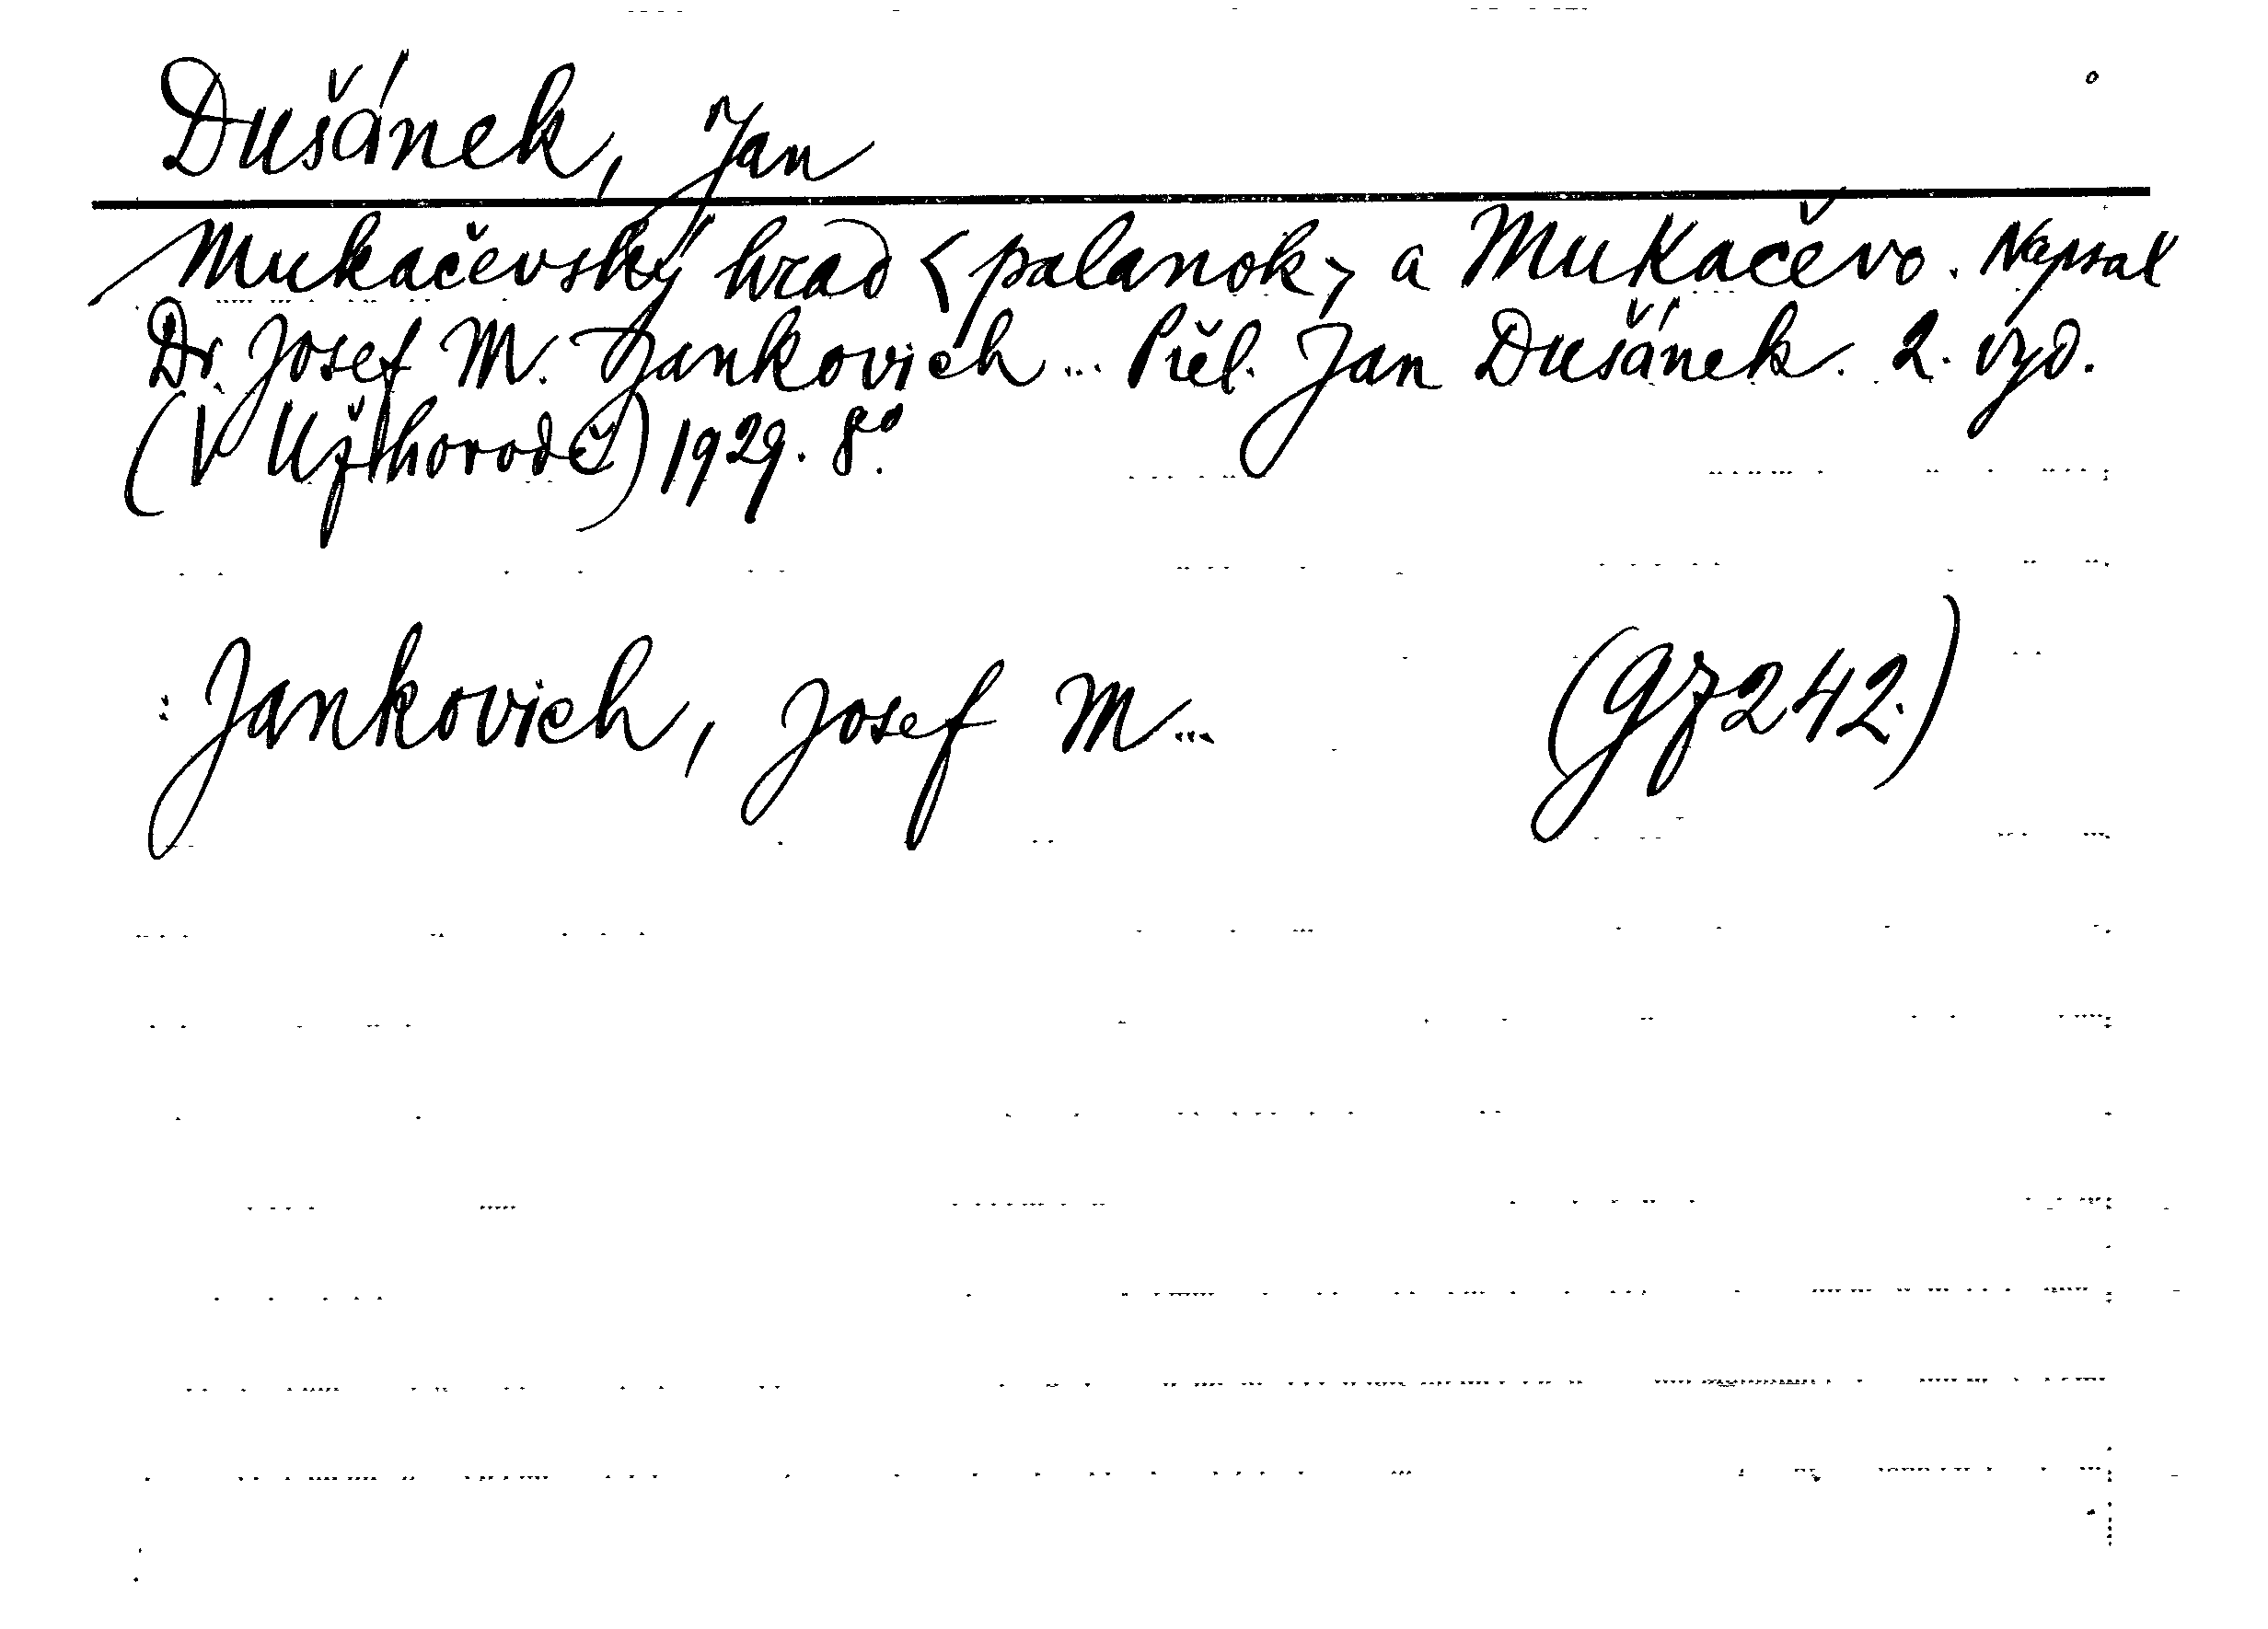 Dušánek, Jan
Mukačevský hrad <palanok> a Mukačevo. Napsal
Dr. Josef M. Jankovich... Přel. Jan Dušánek. 2. vyd.
(V Užhorodě) 1929. 8°.
Jankovich, Josef M... (9 F 242.)